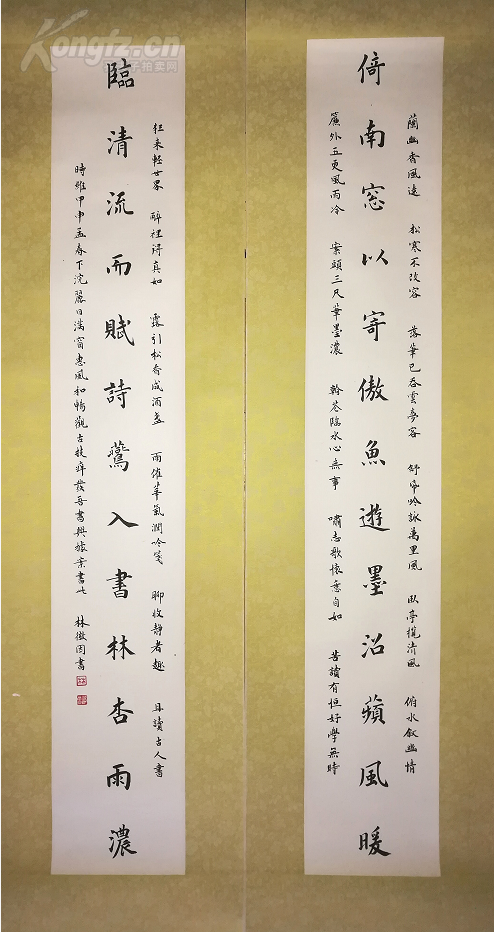 蘭幽香風遠 松寒不改容 落筆已吞雲夢客 舒帋吟詠萬里風 臥亭攬清風 俯水敘幽情
倚南窓以寄傲魚遊墨沼蘋風暖
簾外五更風雨冷 案頭三尺筆墨濃 幹花臨水心無事 嘯志歌懷意自如 苦讀有恒好學無時
狂來輕世界 醉裡得真如 露引松香成酒盞 雨催華氣潤吟箋 聊收靜者趣 且讀古人書
臨清流而賦詩鶯入書林杏雨濃
時維甲申孟春下浣麗日滿窗惠風和暢觀古技痒發吾書興據案書此 林徽因書
Kongfz.cn
子拍卖网